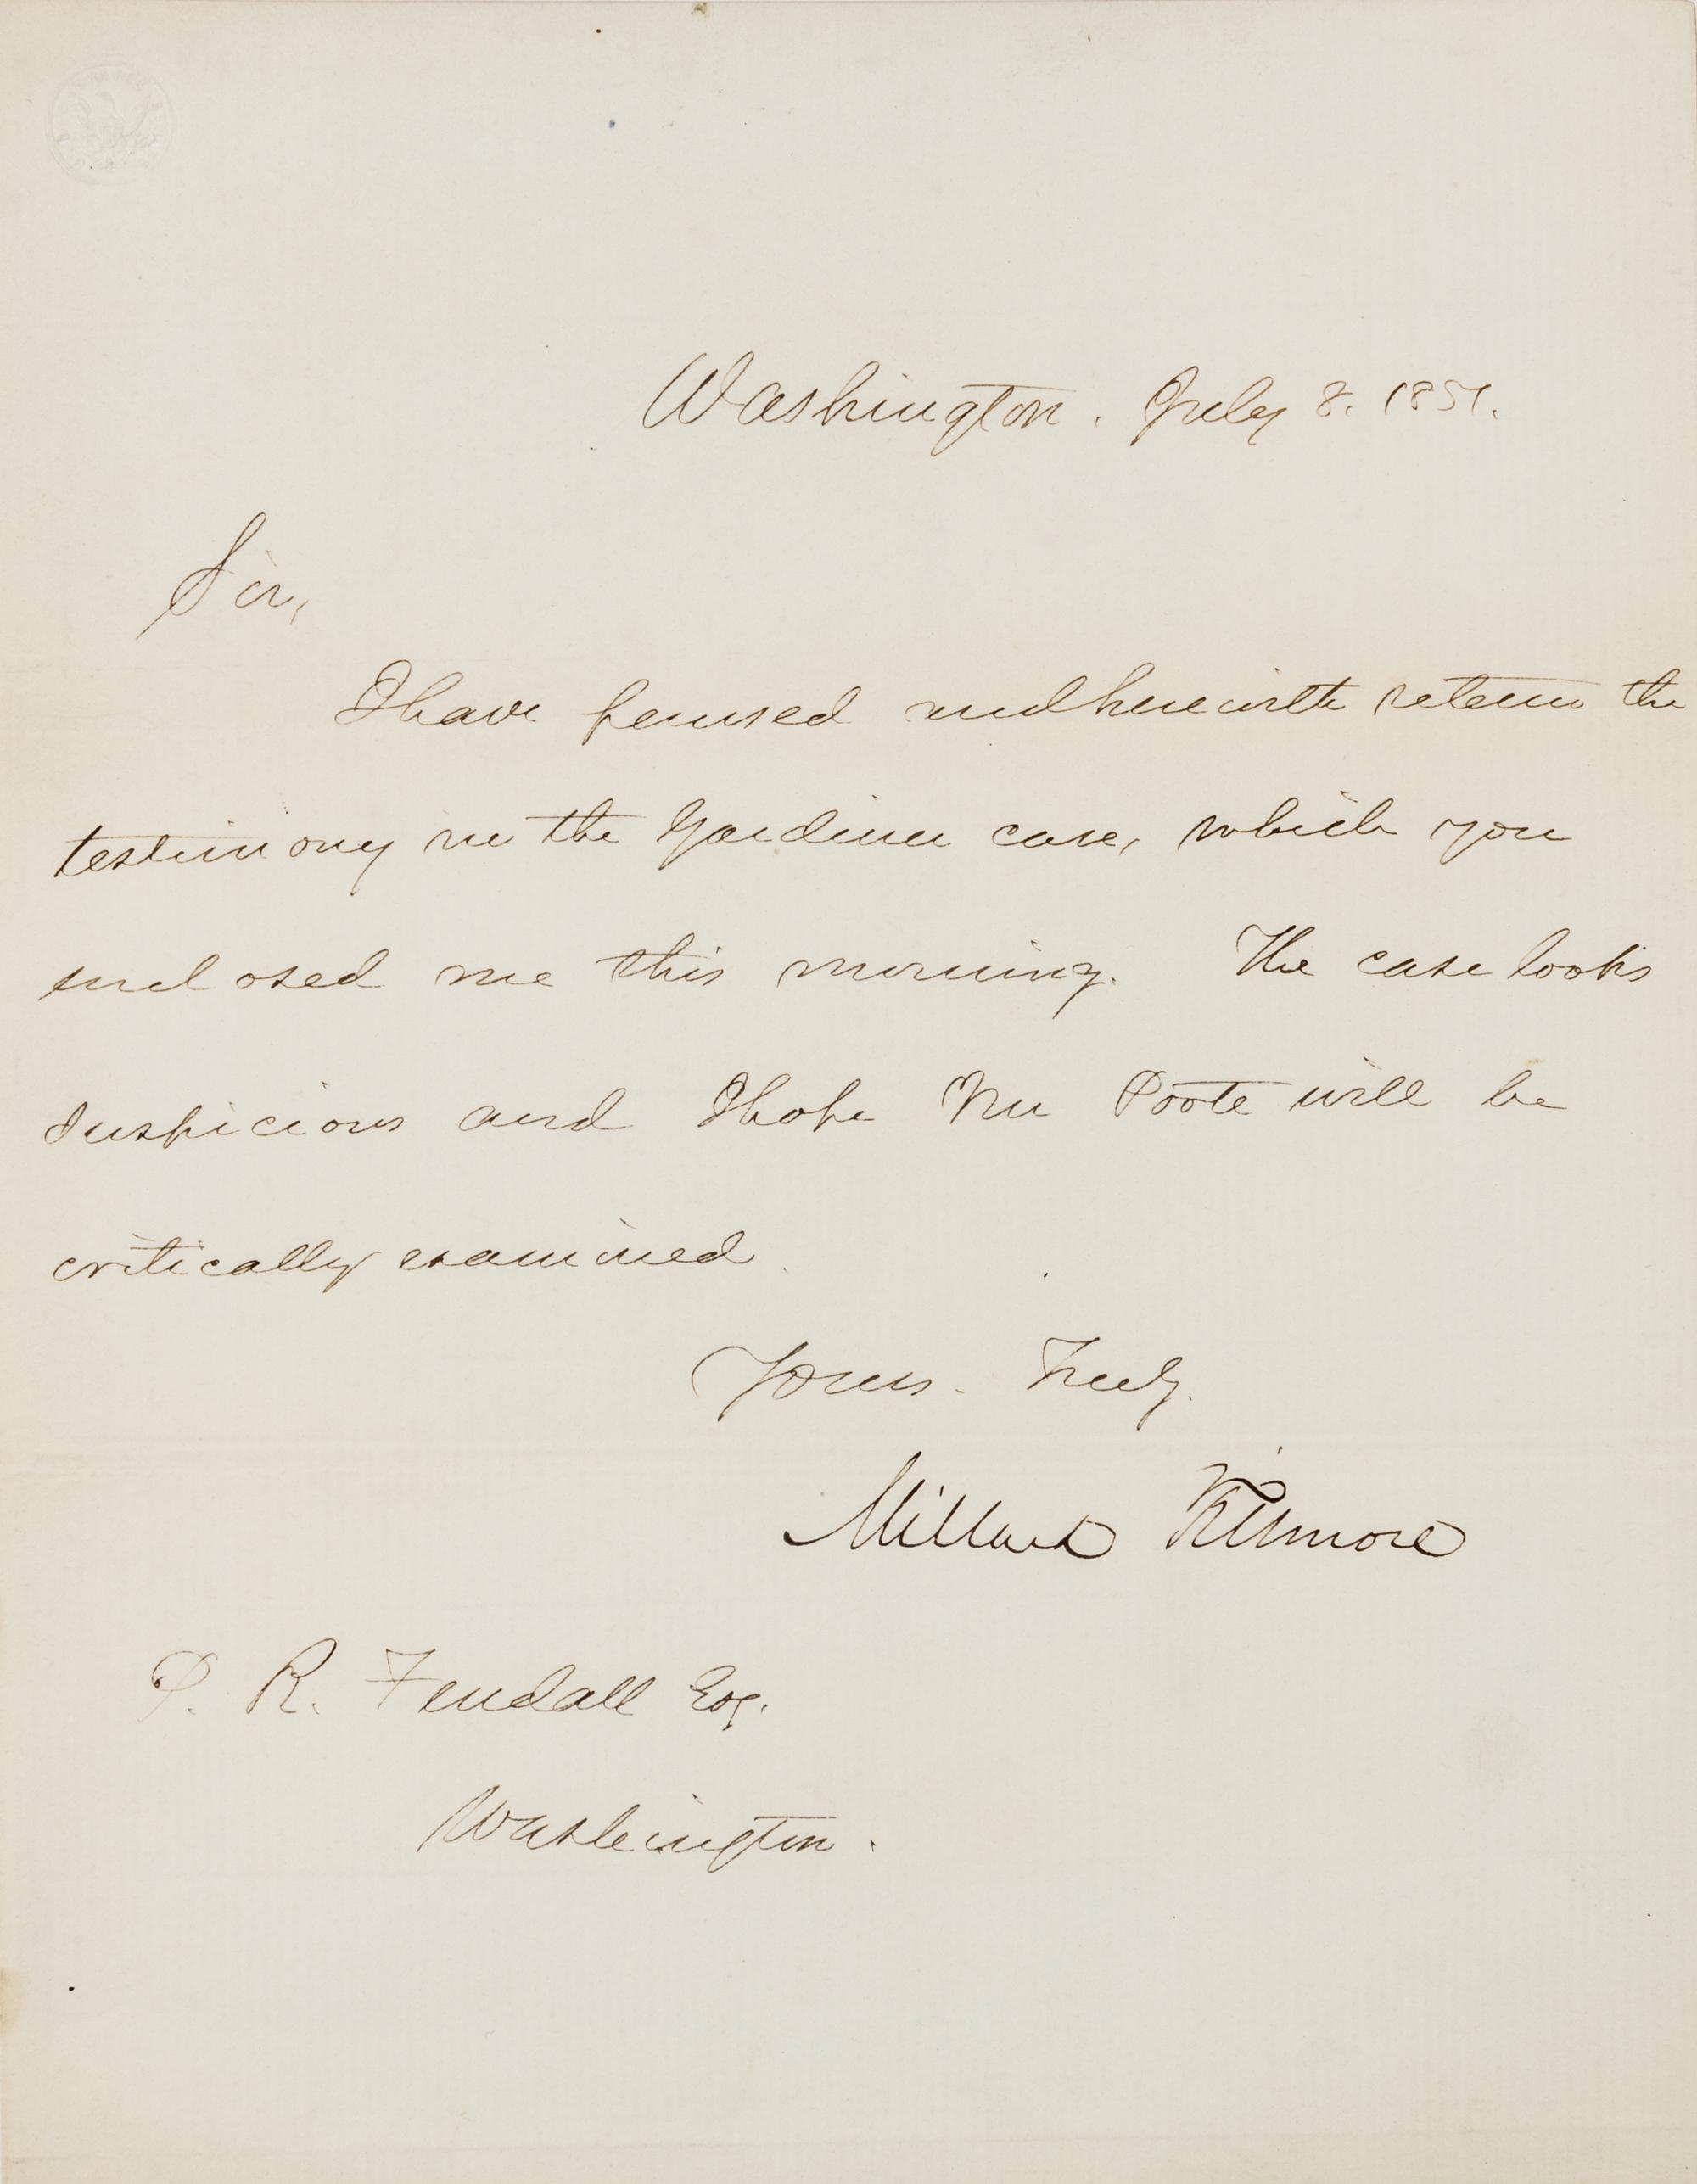 Washington. July 8. 1851.
Sir,
I have perused and herewith return the
testimony in the Gardiner case, which you
enclosed me this morning. The case looks
suspicious and I hope Mr Poote will be
critically examined.
Yours. Truly.
Millard Fillmore
P. R. Fendall Esq.
Washington.